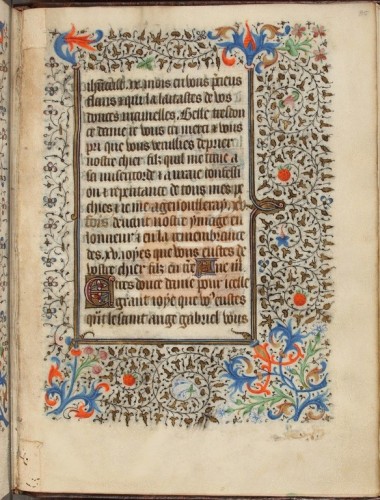 mois en vous precieus
flans et qui lalaitastes de vos
douces mamelles. Belle tresdou
ce dame ie vous cri merci et vous
pri que vous veullies deprier
vostre chier filz quil me tiene a
sa misericorde et a vraie confessi
on et repentance de tous mes pe
chies et ie me agenoulleray .xv.
fois devant vostre ymage en
honneur et en la remembrance
des .xv. ioyes que vous eustes de
vostre chier filz en tre Aue m
tres douce dame pour icelle
grant ioye que vo eustes
qnt le saint ange gabriel vous